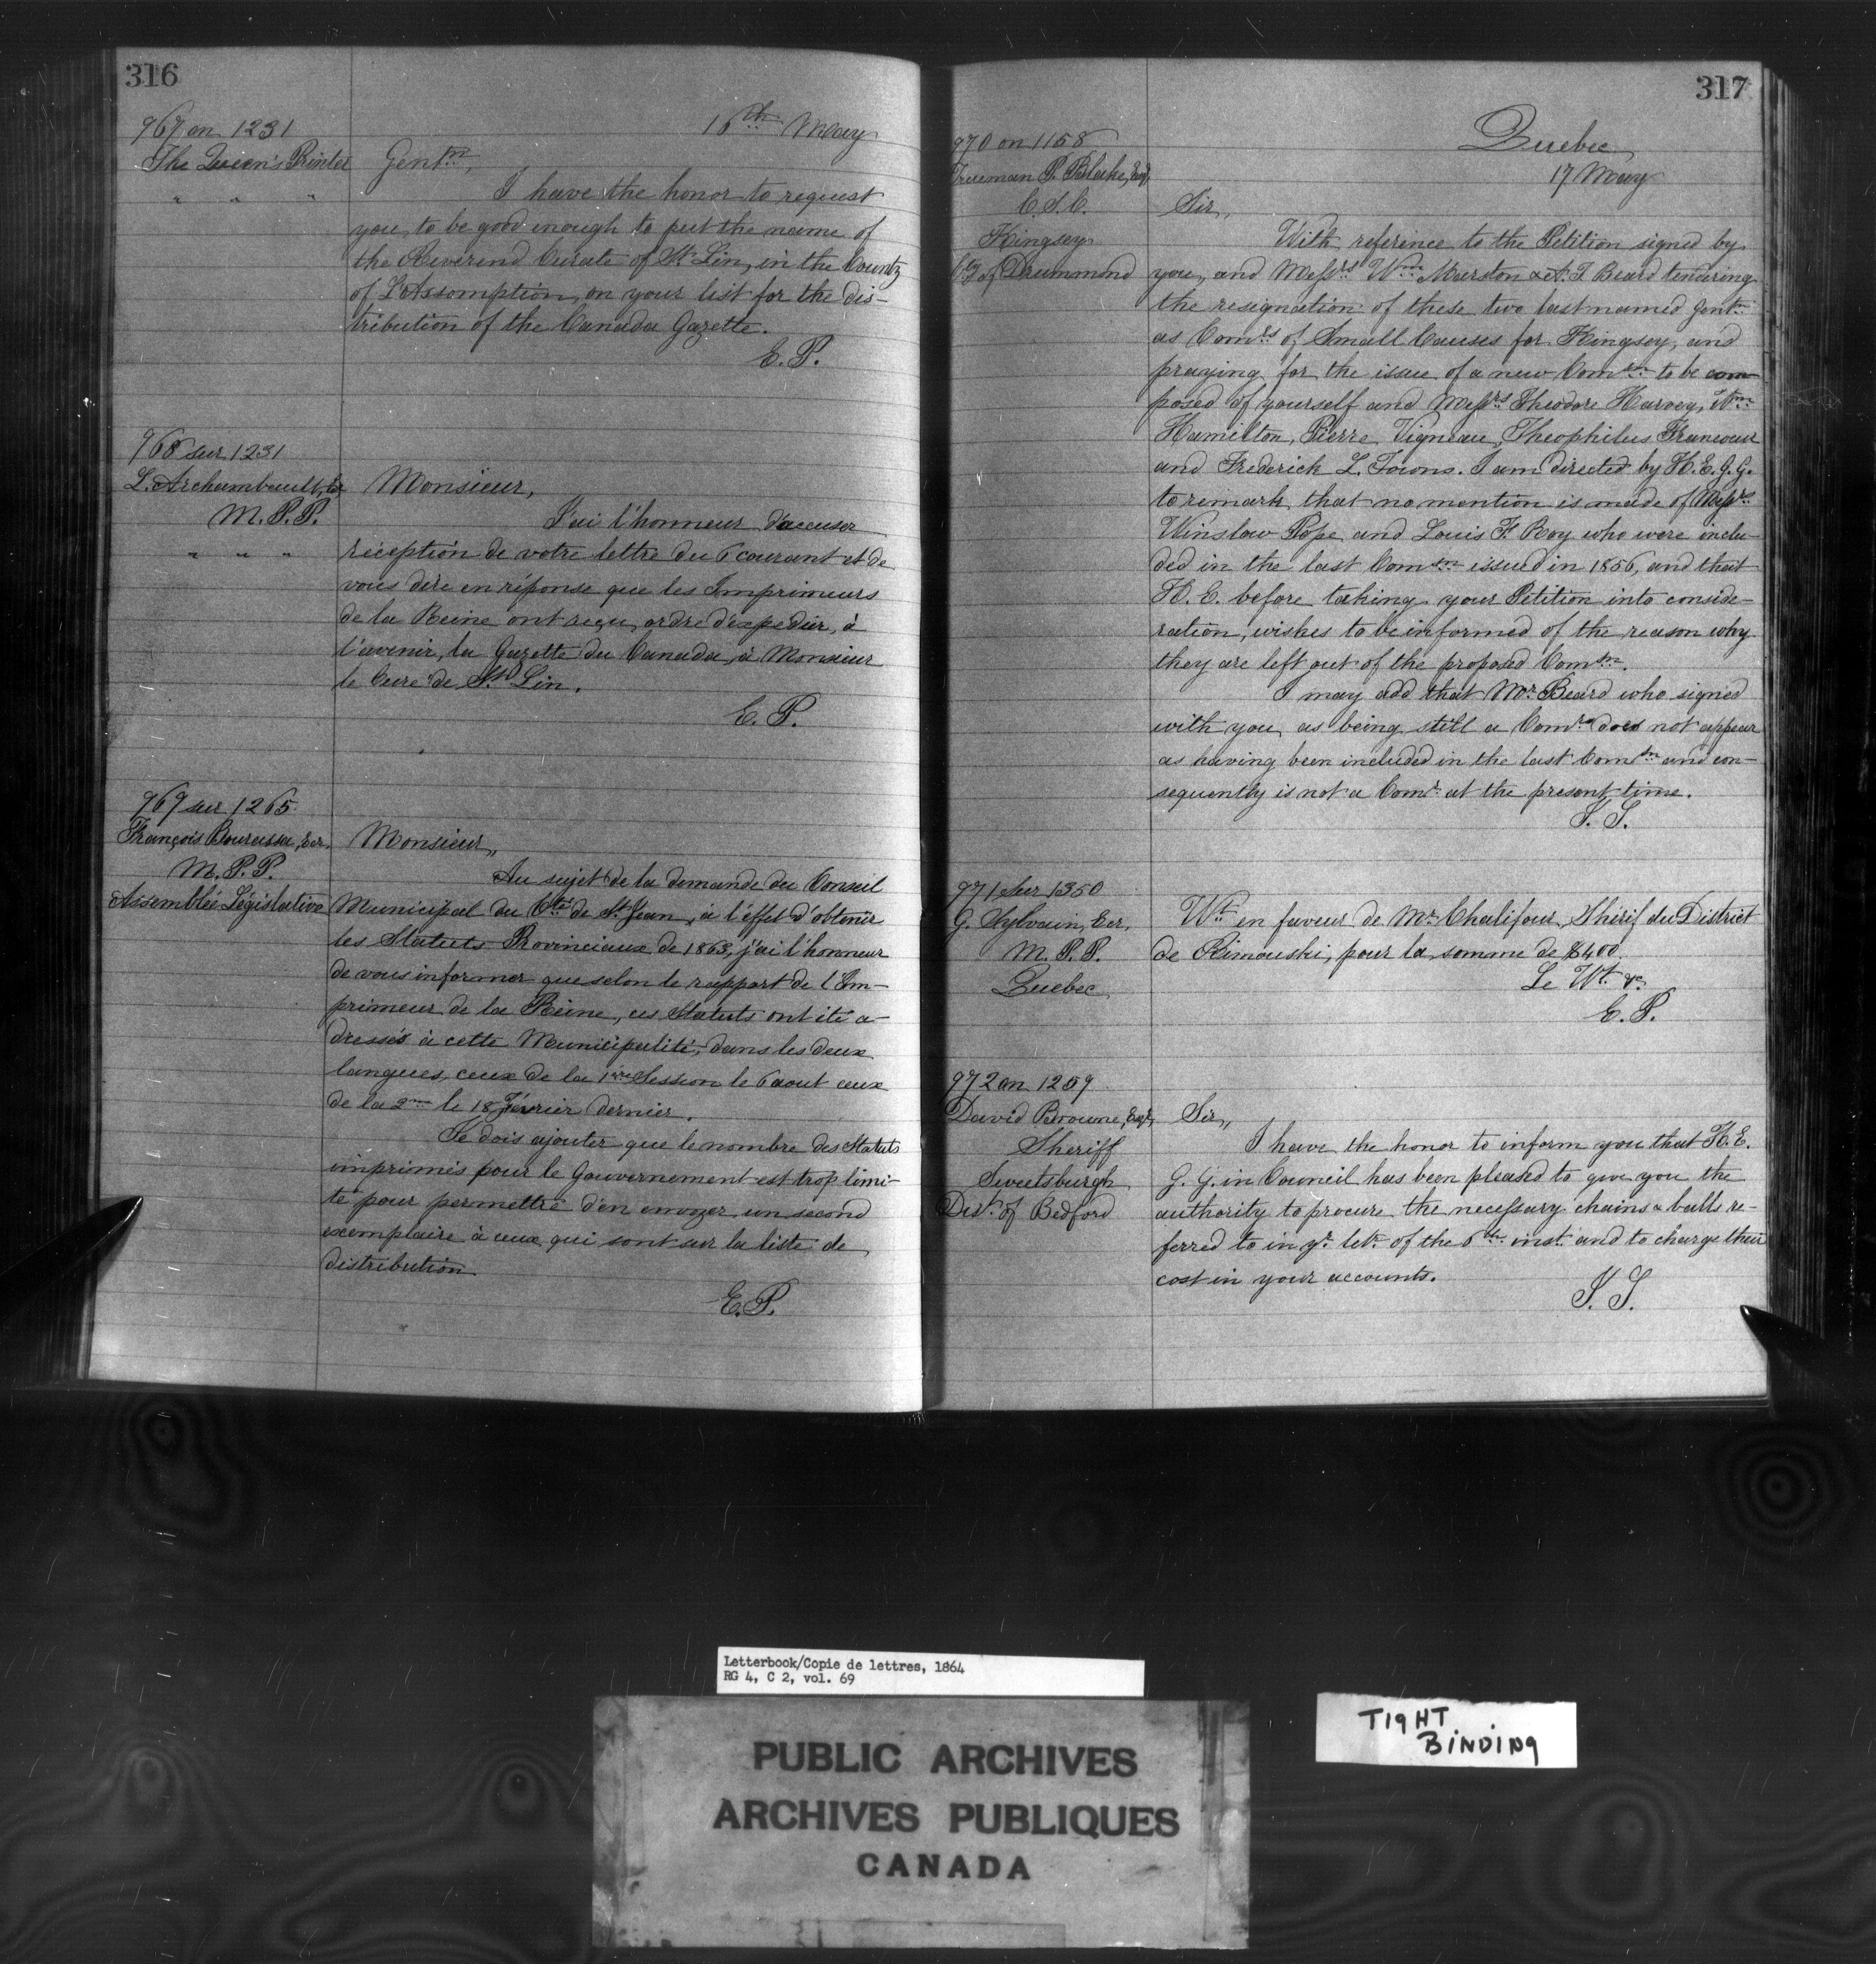 316
967 on 1231
The Queen's Printer
" " "
16th May
Gentn,
I have the honor to request
you, to be good enough to put the name of
the Reverend Curate of St Lin, in the County
of L'Assomption, on your list for the dis-
tribution of the Canada Gazette.
E. P.
968 sur 1231
L. Archambault, Ecr
M. P. P.
" " "
Monsieur,
J'ai l'honneur d'accuser
réception de votre lettre du 6 courant et de
vous dire en réponse que les Imprimeurs
de la Reine ont reçu, ordre d'expedier, à
l'avenir, la Gazette du Canada, à Monsieur
le Curé de St Lin.
E. P.
969 sur 1265
François Bourassa, Ecr.
M. P. P.
Assemblée Législative
Monsieur,,
Au sujet de la demande du Conseil
Municipal du Cté de St Jean, à l'effet d'obtenir
les Statuts Provinciaux de 1863, j'ai l'honneur
de vous informer que selon le rapport de l'Im-
primeur de la Reine, ces Statuts ont été a-
dressés à cette Municipalité, dans les deux
langues, ceux de la 1ère Session le 6 aout ceux
de la 2me le 18 Février dernier.
Je dois ajouter que le nombre des Statuts
imprimés pour le Gouvernement est trop limi-
té pour permettre d'en envoyer un second
exemplaire à ceux qui sont sur la liste de
distribution
E. P.
317
Quebec
17 May
970 on 1158
Trueman P. Blake, Esqr,
C. S. C.
Kingsey
Cty of Drummond
Sir,
With reference to the Petition signed by
you, and Messrs Wm Marston & A. T Beard tendering
the resignation of these two last named Gentn
as Comrs of Small Causes for Kingsey, and
praying for the issue of a new Comsn to be com-
posed of yourself and Messrs Theodore Harvey, Wm
Hamilton, Pierre Vigneau, Theophilus Francoeur
and Frederick L. Towns. I am directed by H. E. G. G.
to remark that no mention is made of Messrs
Winslow Pope and Louis F. Roy who were inclu-
ded in the last Comsn issued in 1856, and that
H. E. before taking your Petition into conside-
ration, wishes to be informed of the reason why
they are left out of the proposed Comsn.
I may add that Mr Beard who signed
with you as being still a Comr does not appear
as having been included in the last Comsn and con-
sequently is not a Comr at the present time.
I. S.
971 Sur 1350
G. Sylvain, Ecr,
M. P. P.
Quebec
Wt en faveur de Mr Chalifour, Shérif du District
de Rimouski, pour la somme de $400.
Le Wt &c
E. P.
972 on 1259
David Browne, Esqr,
Sheriff
Sweetsburgh
Dist. of Bedford
Sir,,
I have the honor to inform you that H. E.
G. G. in Council has been pleased to give you the
authority to procure the necessary chains & balls re-
ferred to in yr letr of the 6th inst and to charge their
cost in your accounts.
I. S.
Letterbook/Copie de lettres, 1864
RG 4, C 2, vol. 69
TIGHT
BINDING
PUBLIC ARCHIVES
ARCHIVES PUBLIQUES
CANADA